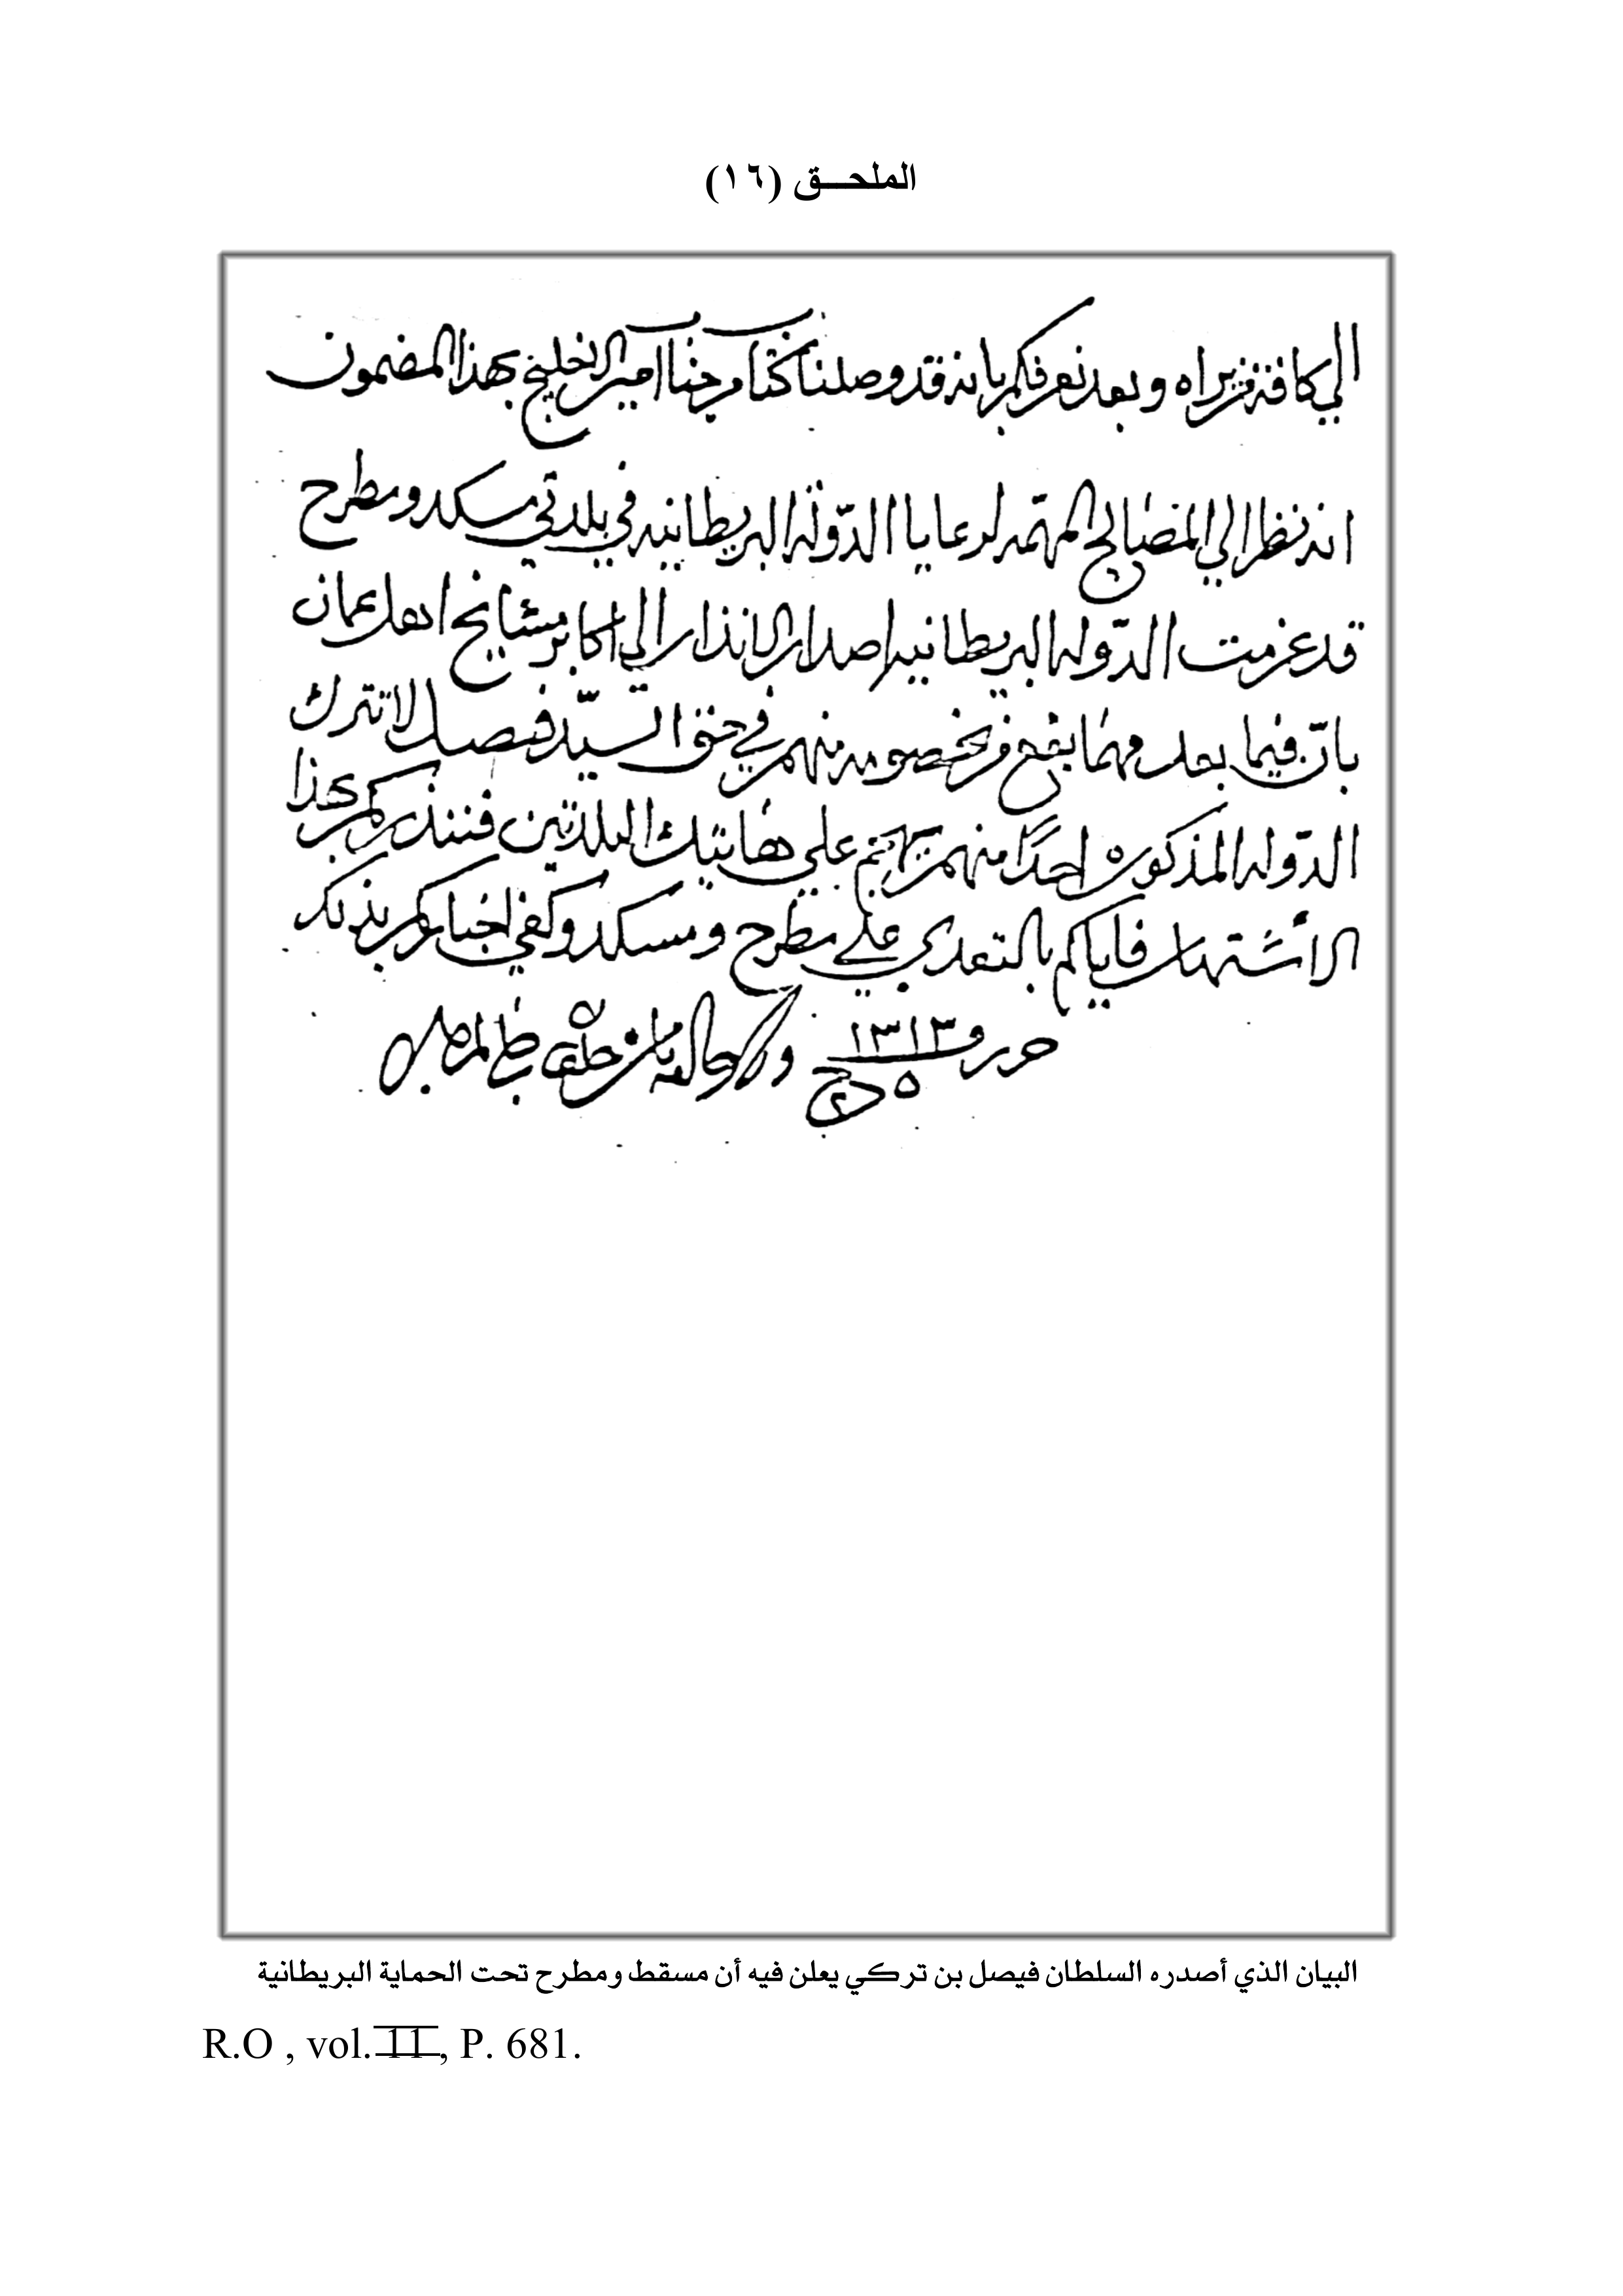 الملحـــق (١٦)
الي كافة من يراه وبعد نعرفكم بانه قد وصلنا كتاب من جناب امير الخليج بهذا المضمون
انه نظرا الي المصالح المهتمه لرعايا الدّولة البريطانيه في بلدتي مسكد ومطرح
قد عزمت الدّوله البريطانيه إصدار الانذار الي اكابر مشايخ اهل عمان
بانّ فيما بعد مهما يقع من خصومه منهم في حق السيّد فيصل لا تترك
الدّوله المذكوره احدًا منهم يهجم على هاتيك البلدتين فننذركم بهذا
الاشتهار فاياكم بالتعدي علي مطرح ومسكد وكفي اخباركم بذلك
حرر و ١٣١٣
٥
البيان الذي أصدره السلطان فيصل بن تركي يعلن فيه أن مسقط ومطرح تحت الحماية البريطانية
R.O , vol. II, P. 681.